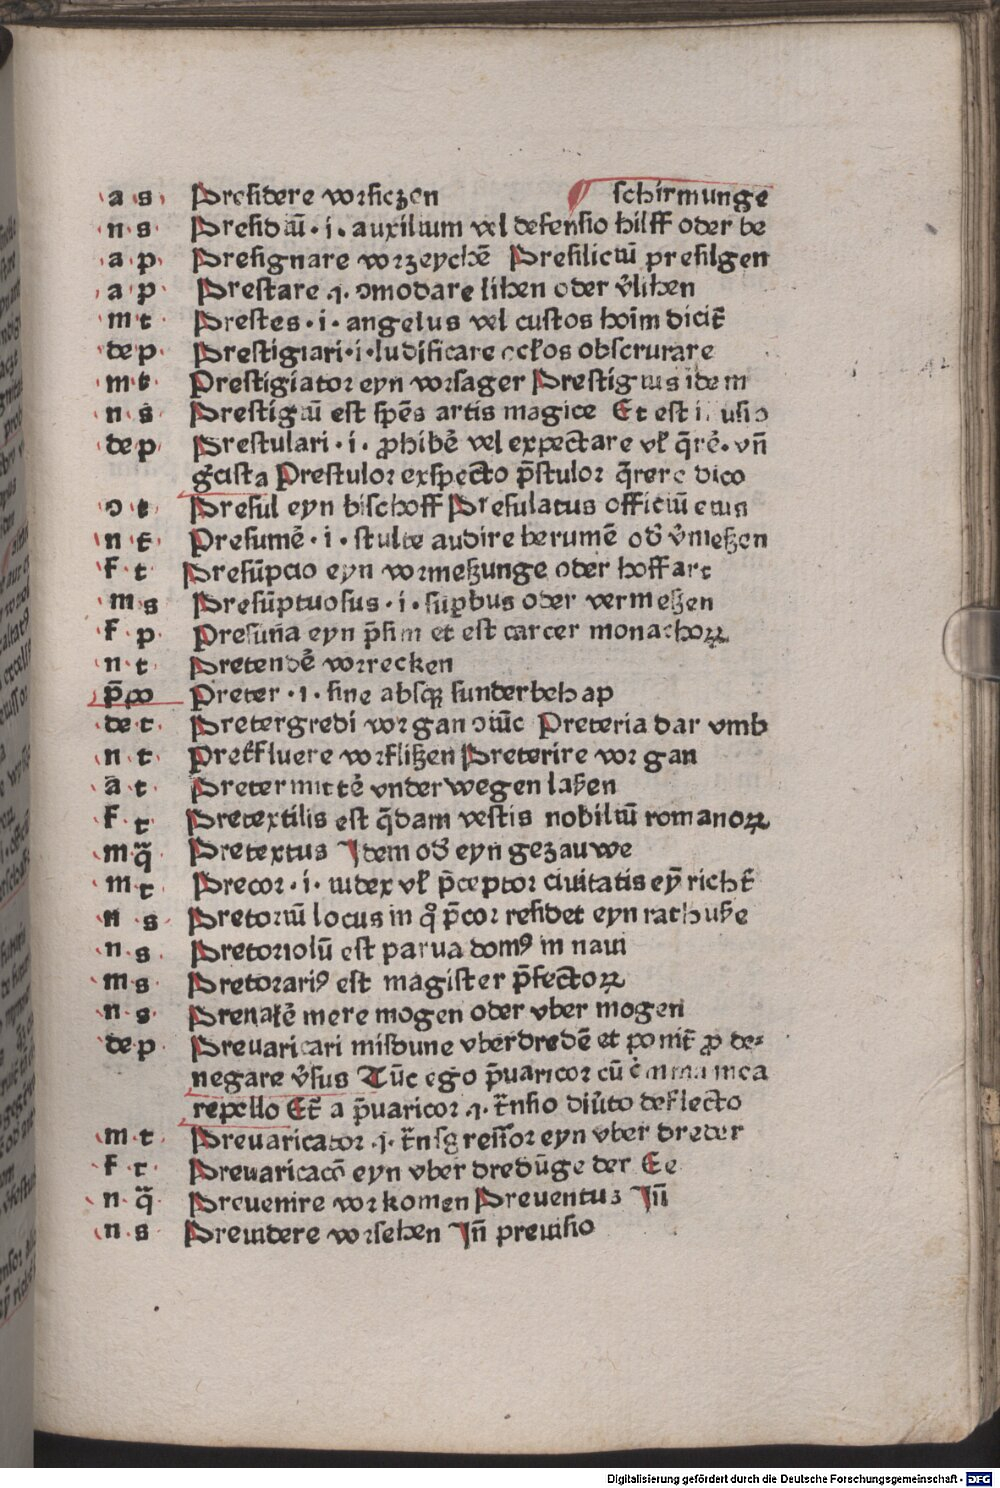 a s Presidere vorsiczen schirmunge
n s Presidiū · i · auxilium vel defensio hilff oder be
a p Presignare vorzeychē Presiliciū presilgen
a p Prestare .q. ɔmodare lihen oder v̄lihen
m t Prestes · i · angelus vel custos hoīm dicit̄
de p Prestigiari · i · ludificare oc̄los obscrurare
m t Prestigiator eyn vorsager Prestigius idem
n s Prestigiū est spēs artis magice Et est usio
de p Prestulari · i · ꝓhibē vel expectare vl̄ q̄rē · vn̄
gcista Prestulor exspecto p̄stulor q̄rere dico
ɔ t Presul eyn bischoff Presulatus officiū eius
n t̄ Presumē · i · stulte audire berumē od̄ v̄meßen
f t Presūpcio eyn vormeßunge oder hoffart
m s Presūptuosus · i · suꝑbus oder vermeßen
f p Presūna eyn p̄sim et est carcer monachoꝝ
n t Pretendē vorrecken
p̄po Preter · i · sine absqꝫ sunderbehap
de t Pretergredi vorgan Preteria dar vmb
n t Pret̄fluere vorflißen Preterire vor gan
a t Pretermittē vnderwegen laßen
f t Pretextilis est q̄dam vestis nobiliū romanoꝝ
m q̄ Pretextus Idem od̄ eyn gezauwe
m t Precor · i · iudex vl̄ p̄ceptor ciuitatis eȳ richt̄
n s Pretoriū locus in q° p̄cor residet eyn rathuße
n s Pretoriolū est parua domꝰ in naui
m s Pretorariꝰ est magister p̄fectoꝝ
n s Preualē mere mogen oder vber mogen
de p Preuaricari misdune vberdredē et ponit̄ ꝓ de-
negare v̄sus Tūc ego p̄uaricor cū mea
repello Et̄ a p̄uaricor .q. t̄nsio diūto deflecto
m t Preuaricator .i. t̄nsgressor eyn vber dreder
f t Preuaricacō eyn vber dredūge der Ee
n q̄ Preuenire vorkomen Preuentus In̄
n s Preuidere vorsehen In̄ preuisio
Digitalisierung gefördert durch die Deutsche Forschungsgemeinschaft - DFG